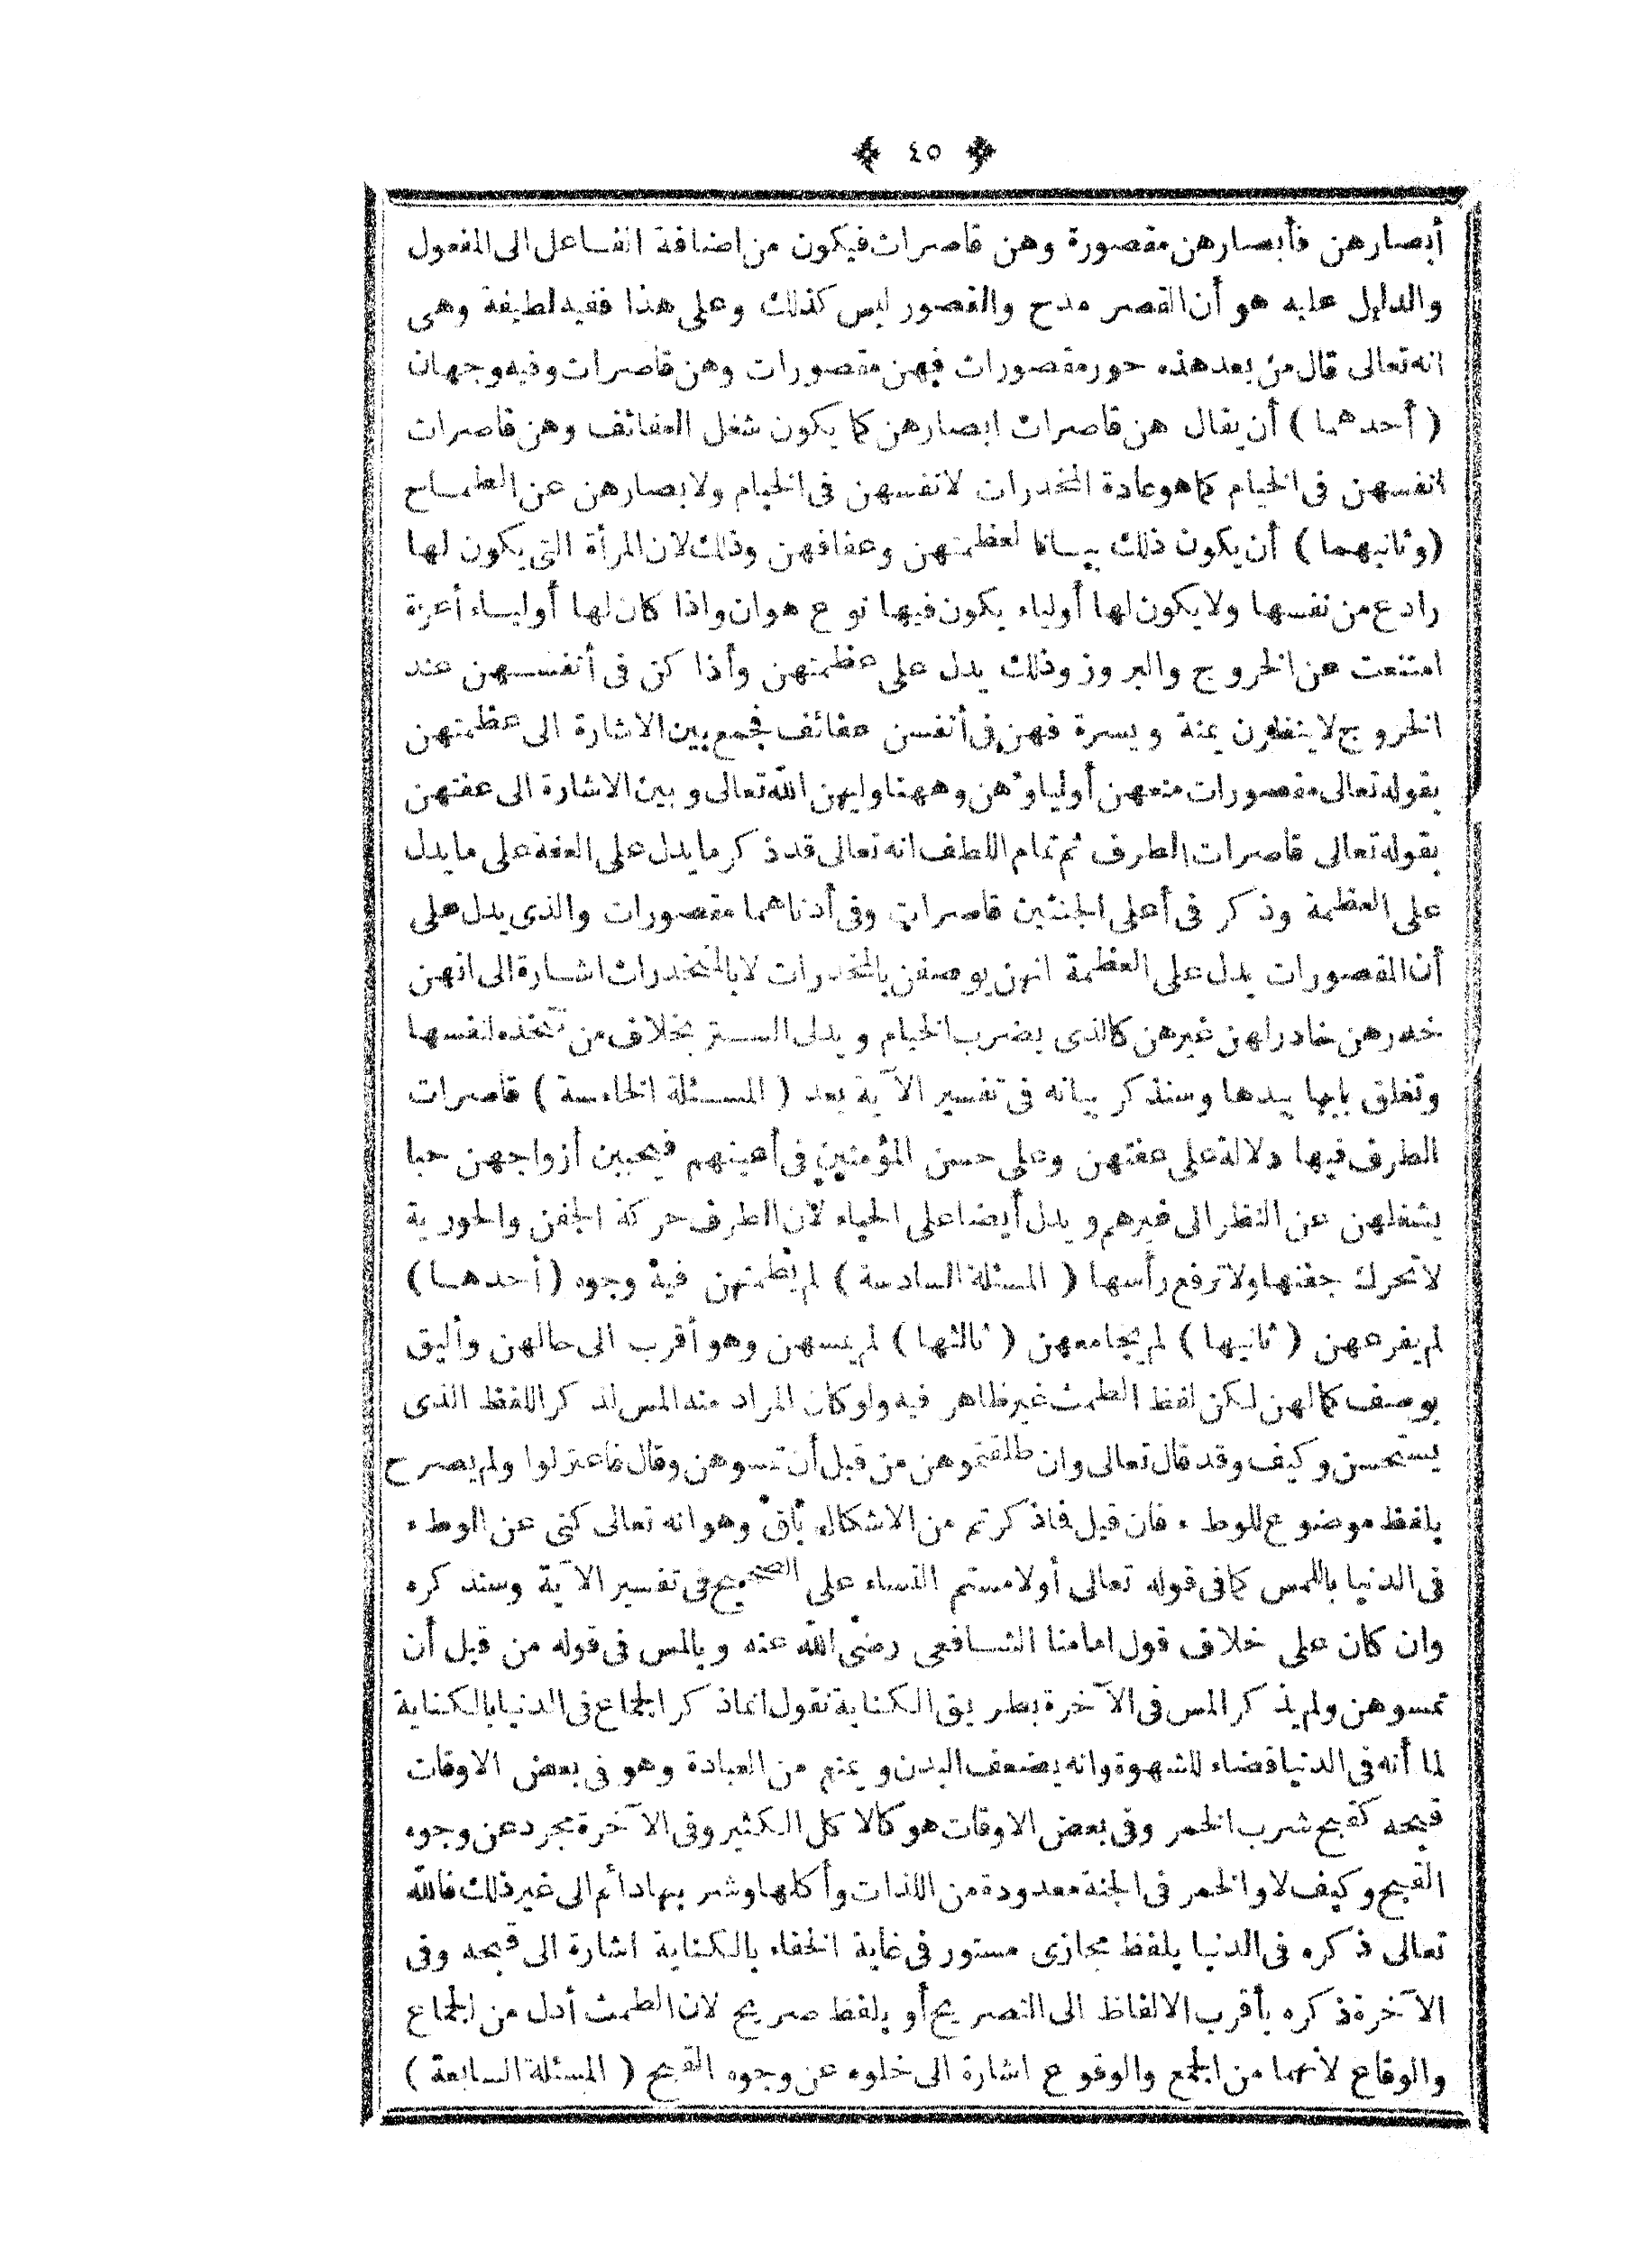 ﴿ ٤٥ ﴾
أبصارهن فأبصارهن مقصورة وهن قاصرات فيكون من اضافة الفاعل الى المفعول
والدليل عليه هو أن القصر مدح والقصور ليس كذلك وعلى هذا ففيه لطيفة وهى
انه تعالى قال من بعد هذه حور مقصورات فهن مقصورات وهن قاصرات وفيه وجهان
(أحدهما) أن يقال هن قاصرات ابصارهن كما يكون شغل العفائف وهن قاصرات
انفسهن فى الخيام كما هو عادة المخدرات لانفسهن فى الخيام ولابصارهن عن الطماح
(وثانيهما) أن يكون ذلك بيانا لعظمتهن وعفافهن وذلك لان المرأة التى يكون لها
رادع من نفسها ولا يكون لها أولياء يكون فيها نوع هوان واذا كان لها أولياء أعزة
امتنعت عن الخروج والبروز وذلك يدل على عظمتهن وأذا كن فى أنفسهن عند
الخروج لا ينظرن يمنة ويسرة فهن فى أنفسن عفائف فجمع بين الاشارة الى عظمتهن
بقوله تعالى مقصورات منعهن أولياؤهن وههنا وليهن الله تعالى وبين الاشارة الى عفتهن
بقوله تعالى قاصرات الطرف ثم تمام اللطف انه تعالى قد ذكر ما يدل على العفة على ما يدل
على العظمة وذكر فى أعلى الجنتين قاصرات وفى أدناهما مقصورات والذى يدل على
أن المقصورات يدل على العظمة انهن يوصفن بالمخدرات لا بالمتخدرات اشارة الى انهن
خدرهن خادر لهن غيرهن كالذى يضرب الخيام ويدلى الستر بخلاف من تتخذه لنفسها
وتغلق بابها بيدها وسنذكر بيانه فى تفسير الآية بعد (المسئلة الخامسة) قاصرات
الطرف فيها دلالة على عفتهن وعلى حسن المؤمنين فى أعينهم فيحببن أزواجهن حبا
يشغلهن عن النظر الى غيرهم ويدل أيضا على الحياء لان الطرف حركة الجفن والحورية
لا تحرك جفنها ولا ترفع رأسها (المسئلة السادسة) لم يطمثهن فيه وجوه (أحدها)
لم يفرعهن (ثانيها) لم يجامعهن (ثالثها) لم يمسهن وهو أقرب الى حالهن وأليق
بوصف كمالهن لكن لفظ الطمث غير ظاهر فيه ولو كان المراد منه المس لذكر اللفظ الذى
يستحسن وكيف وقد قال تعالى وان طلقتموهن من قبل أن تمسوهن وقال فاعتزلوا ولم يصرح
بلفظ موضوع للوطء فان قيل فاذكرتم من الاشكال باق وهو انه تعالى كنى عن الوطء
فى الدنيا باللمس كما فى قوله تعالى أو لامستم النساء على الصحيح فى تفسير الآية وسنذكره
وان كان على خلاف قول امامنا الشافعى رضى الله عنه وبالمس فى قوله من قبل أن
تمسوهن ولم يذكر المس فى الآخرة بطريق الكناية نقول انما ذكر الجماع فى الدنيا بالكناية
لما أنه فى الدنيا قضاء للشهوة وانه يضعف البدن ويمنع من العبادة وهو فى بعض الاوقات
قبحه كقبح شرب الخمر وفى بعض الاوقات هو كالاكل الكثير وفى الآخرة مجرد عن وجوه
القبح وكيف لا والخمر فى الجنة معدودة من اللذات وأكلها وشربها دائم الى غير ذلك فالله
تعالى ذكره فى الدنيا بلفظ مجازى مستور فى غاية الخفاء بالكناية اشارة الى قبحه وفى
الآخرة ذكره بأقرب الالفاظ الى التصريح أو بلفظ صريح لان الطمث أدل من الجماع
والوقاع لأنهما من الجمع والوقوع اشارة الى خلوه عن وجوه القبح (المسئلة السابعة)